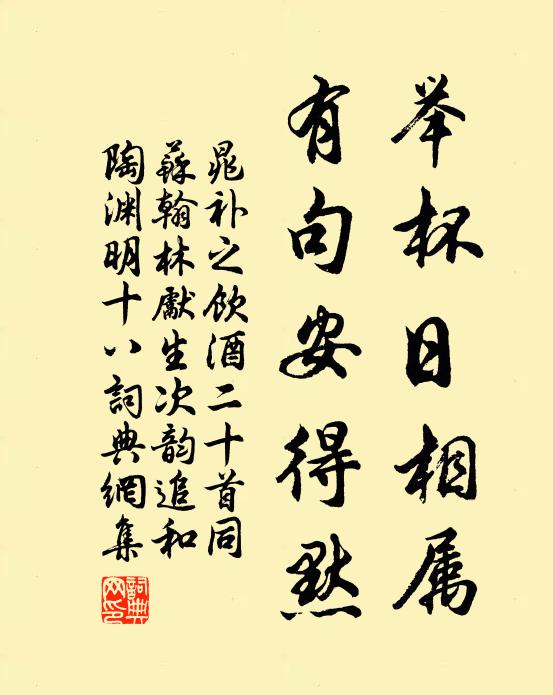 举杯日相属
有句安得默
晁补之饮酒二十首同
蘇翰林獻生次韵追和
陶渊明十八詞典網集
詞典
网印